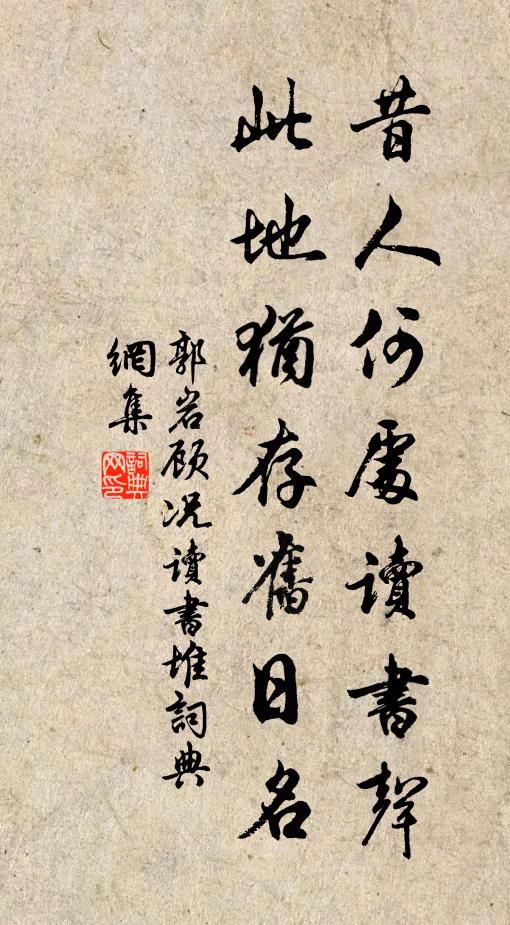 昔人何處讀書聲
此地猶存舊日名
郭岩顧况讀書堆詞典
網集
詞典
网印